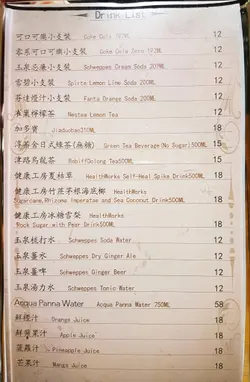 Drink List
可口可樂小支裝 Coke Cola 192ML 12
零系可口可樂小支裝 Coke Cola Zero 192ML 12
玉泉忌廉小支裝 Schweppes Cream Soda 200ML 12
雪碧小支裝 Spirte Lemon Lime Soda 200ML 12
芬達橙汁小支裝 Fanta Orange Soda 200ML 12
雀巢檸檬茶 Nestea Lemon Tea 12
加多寶 Jiaduobao310ML 18
淳茶舍日式綠茶(無糖) Green Tea Beverage(No Sugar)500ML 15
津路烏龍茶 500ML 15
健康工房夏枯草 HealthWorks Self-Heal Spike Drink500ML 18
健康工房竹蔗茅根海底椰 HealthWorks
Sugarcane,Rhizoma Imperatae and Sea Coconut Drink500ML 18
健康工房冰糖雪梨 HealthWorks
Rock Sugar with Pear Drink500ML 18
玉泉梳打水 Schweppes Soda Water 12
玉泉薑水 Schweppes Dry Ginger Ale 12
玉泉薑啤 Schweppes Ginger Beer 12
玉泉湯力水 Schweppes Tonic Water 12
Acqua Panna Water Acqua Panna Water 750ML 58
鮮橙汁 Orange Juice 18
鮮蘋果汁 Apple Juice 18
菠蘿汁 Pineapple Juice 18
芒果汁 Mango Juice 18